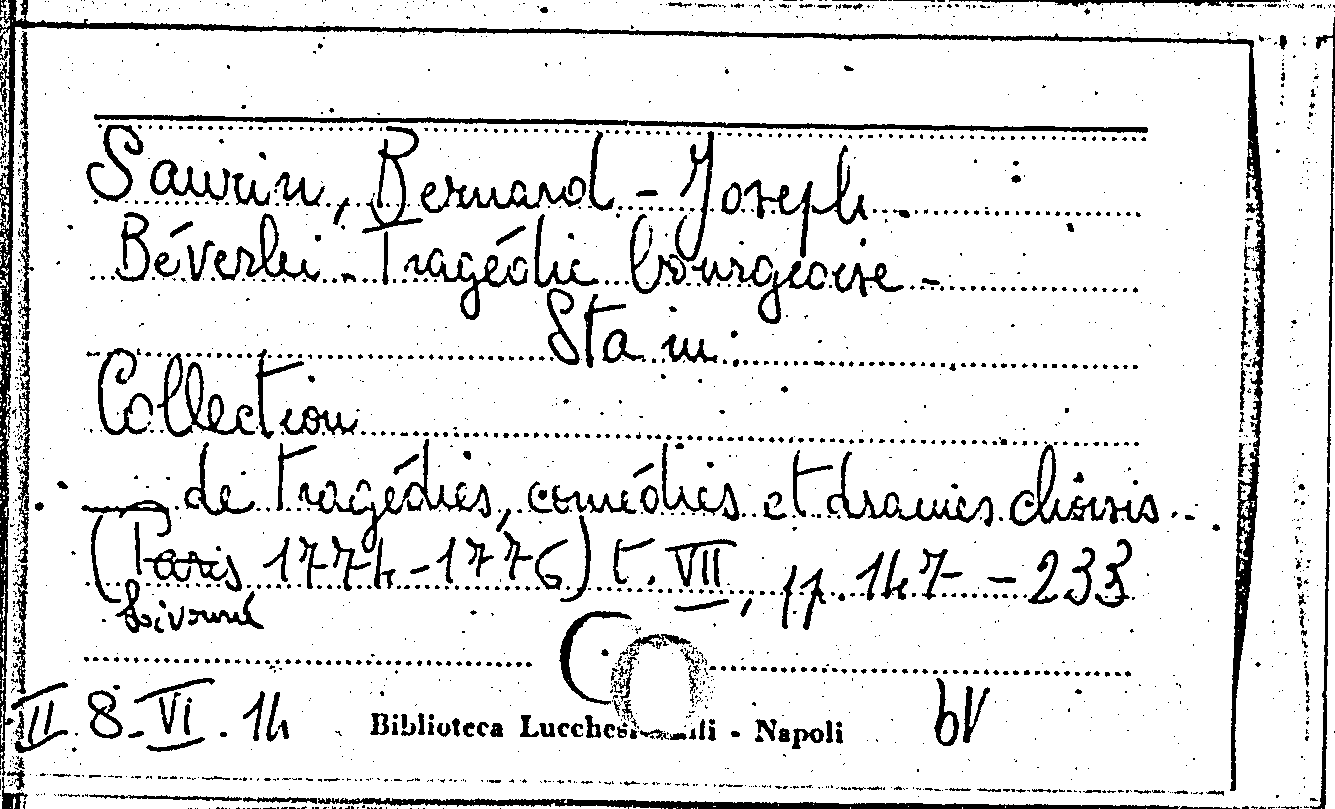 Saurin, Bernard - Joseph.
Béverlei - Tragédie bourgeoise -
Sta in:
Collection
de tragédies, comédies et drames choisis..
(Paris 1774-1776) t. VII, pp. 147 - 233
Livourne
II. 8. VI. 14
Biblioteca Lucchesi - Napoli
bV